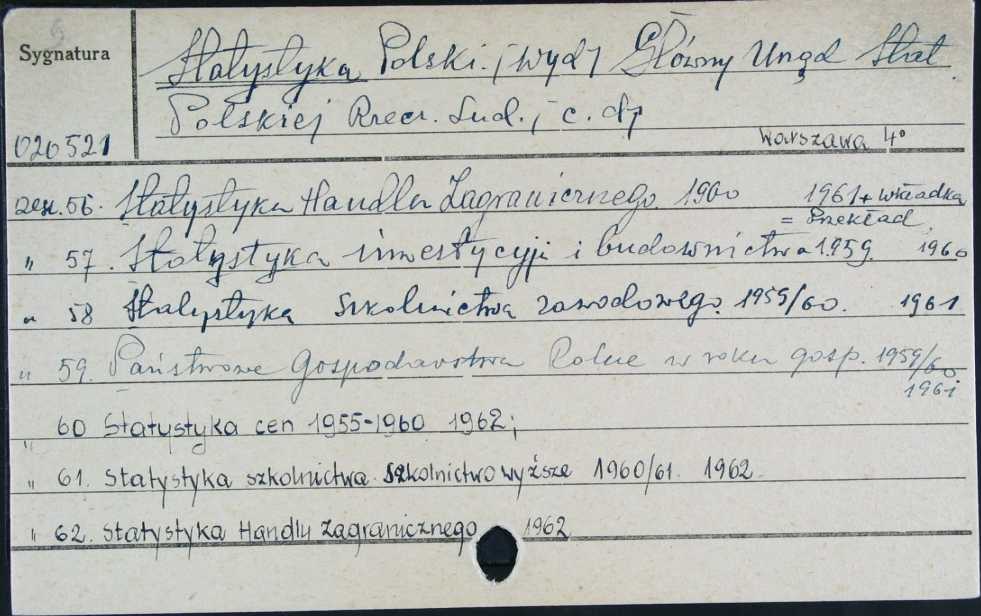 Sygnatura
Statystyka Polski. /wyd/ Główny Urząd Stat.
Polskiej Rzecz. Lud., c. d/
020521
Warszawa 4°
Zesz. 56. Statystyka Handlu Zagranicznego 1960 1961 + wkładka
= Przekład
" 57. Statystyka inwestycyji i budownictwa 1959. 1960
" 58 Statystyka szkolnictwa zawodowego. 1959/60. 1961
" 59. Państwowe Gospodarstwa Rolne w roku gosp. 1959/60
1961
" 60 Statystyka cen 1955-1960 1962;
" 61. Statystyka szkolnictwa. Szkolnictwo wyższe 1960/61. 1962.
" 62. Statystyka Handlu Zagranicznego 1962